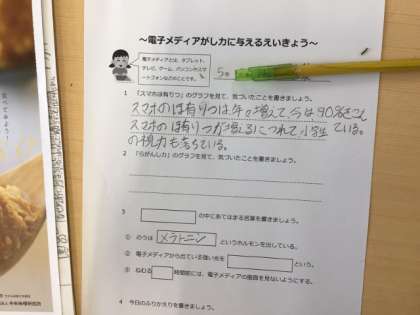 ～電子メディアがし力に与えるえいきょう～
電子メディアとは、タブレット、
テレビ、ゲーム、パソコンやスマ
ートフォンなどのことです。
5年
1 「スマホほ有りつ」のグラフを見て、気づいたことを書きましょう。
スマホのほ有りつは年々増えて、今は90%をこえ
ている。
スマホのほ有りつが増えるにつれて小学生
の視力も落ちている。
2 「らがんし力」のグラフを見て、気づいたことを書きましょう。
3 の中にあてはまる言葉を書きましょう。
① のうは メラトニン というホルモンを出している。
② 電子メディアから出ている強い光を という。
③ ねむる 時間前には、電子メディアの画面を見ないようにする。
4 今日のふりかえりを書きましょう。
食べてみよう！